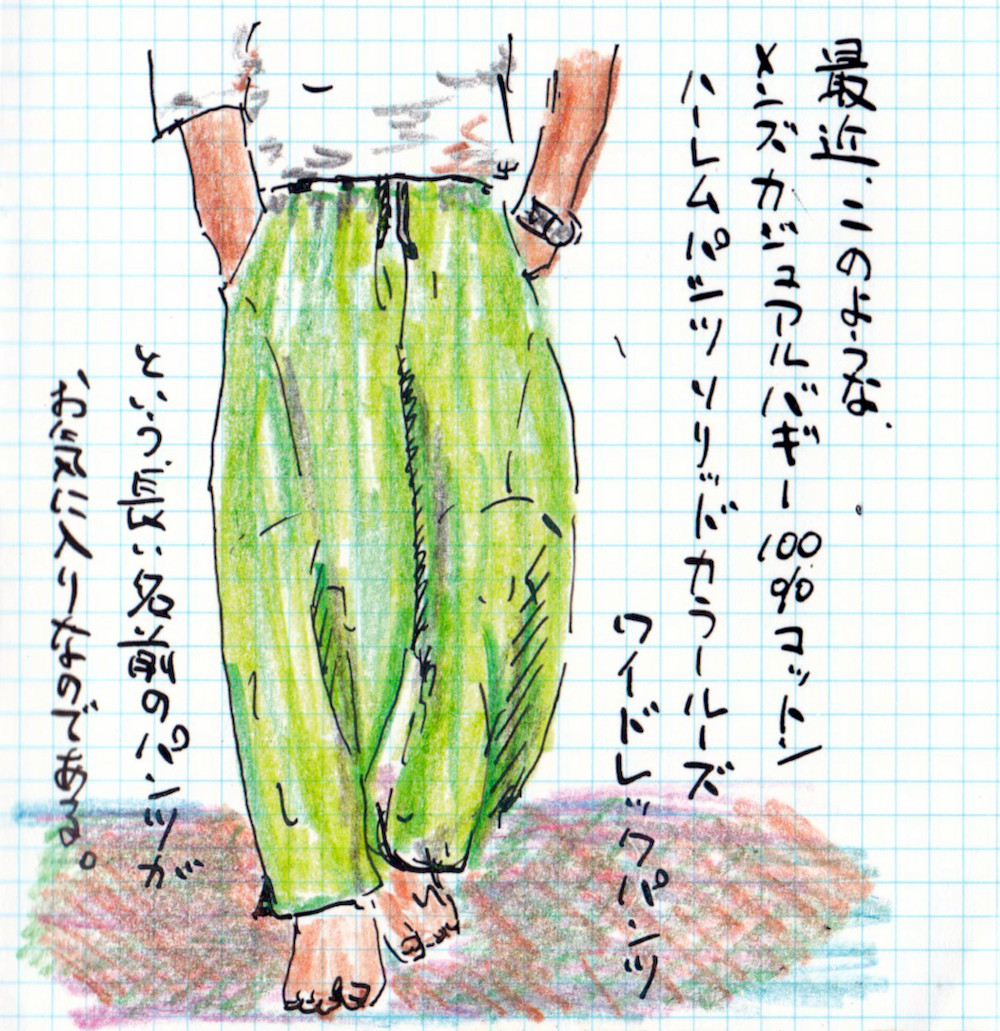 最近、このような
メンズカジュアルバギー100%コットン
ハーレムパンツソリッドカラールーズ
ワイドレッグパンツ
という長い名前のパンツが
お気に入りなのである。